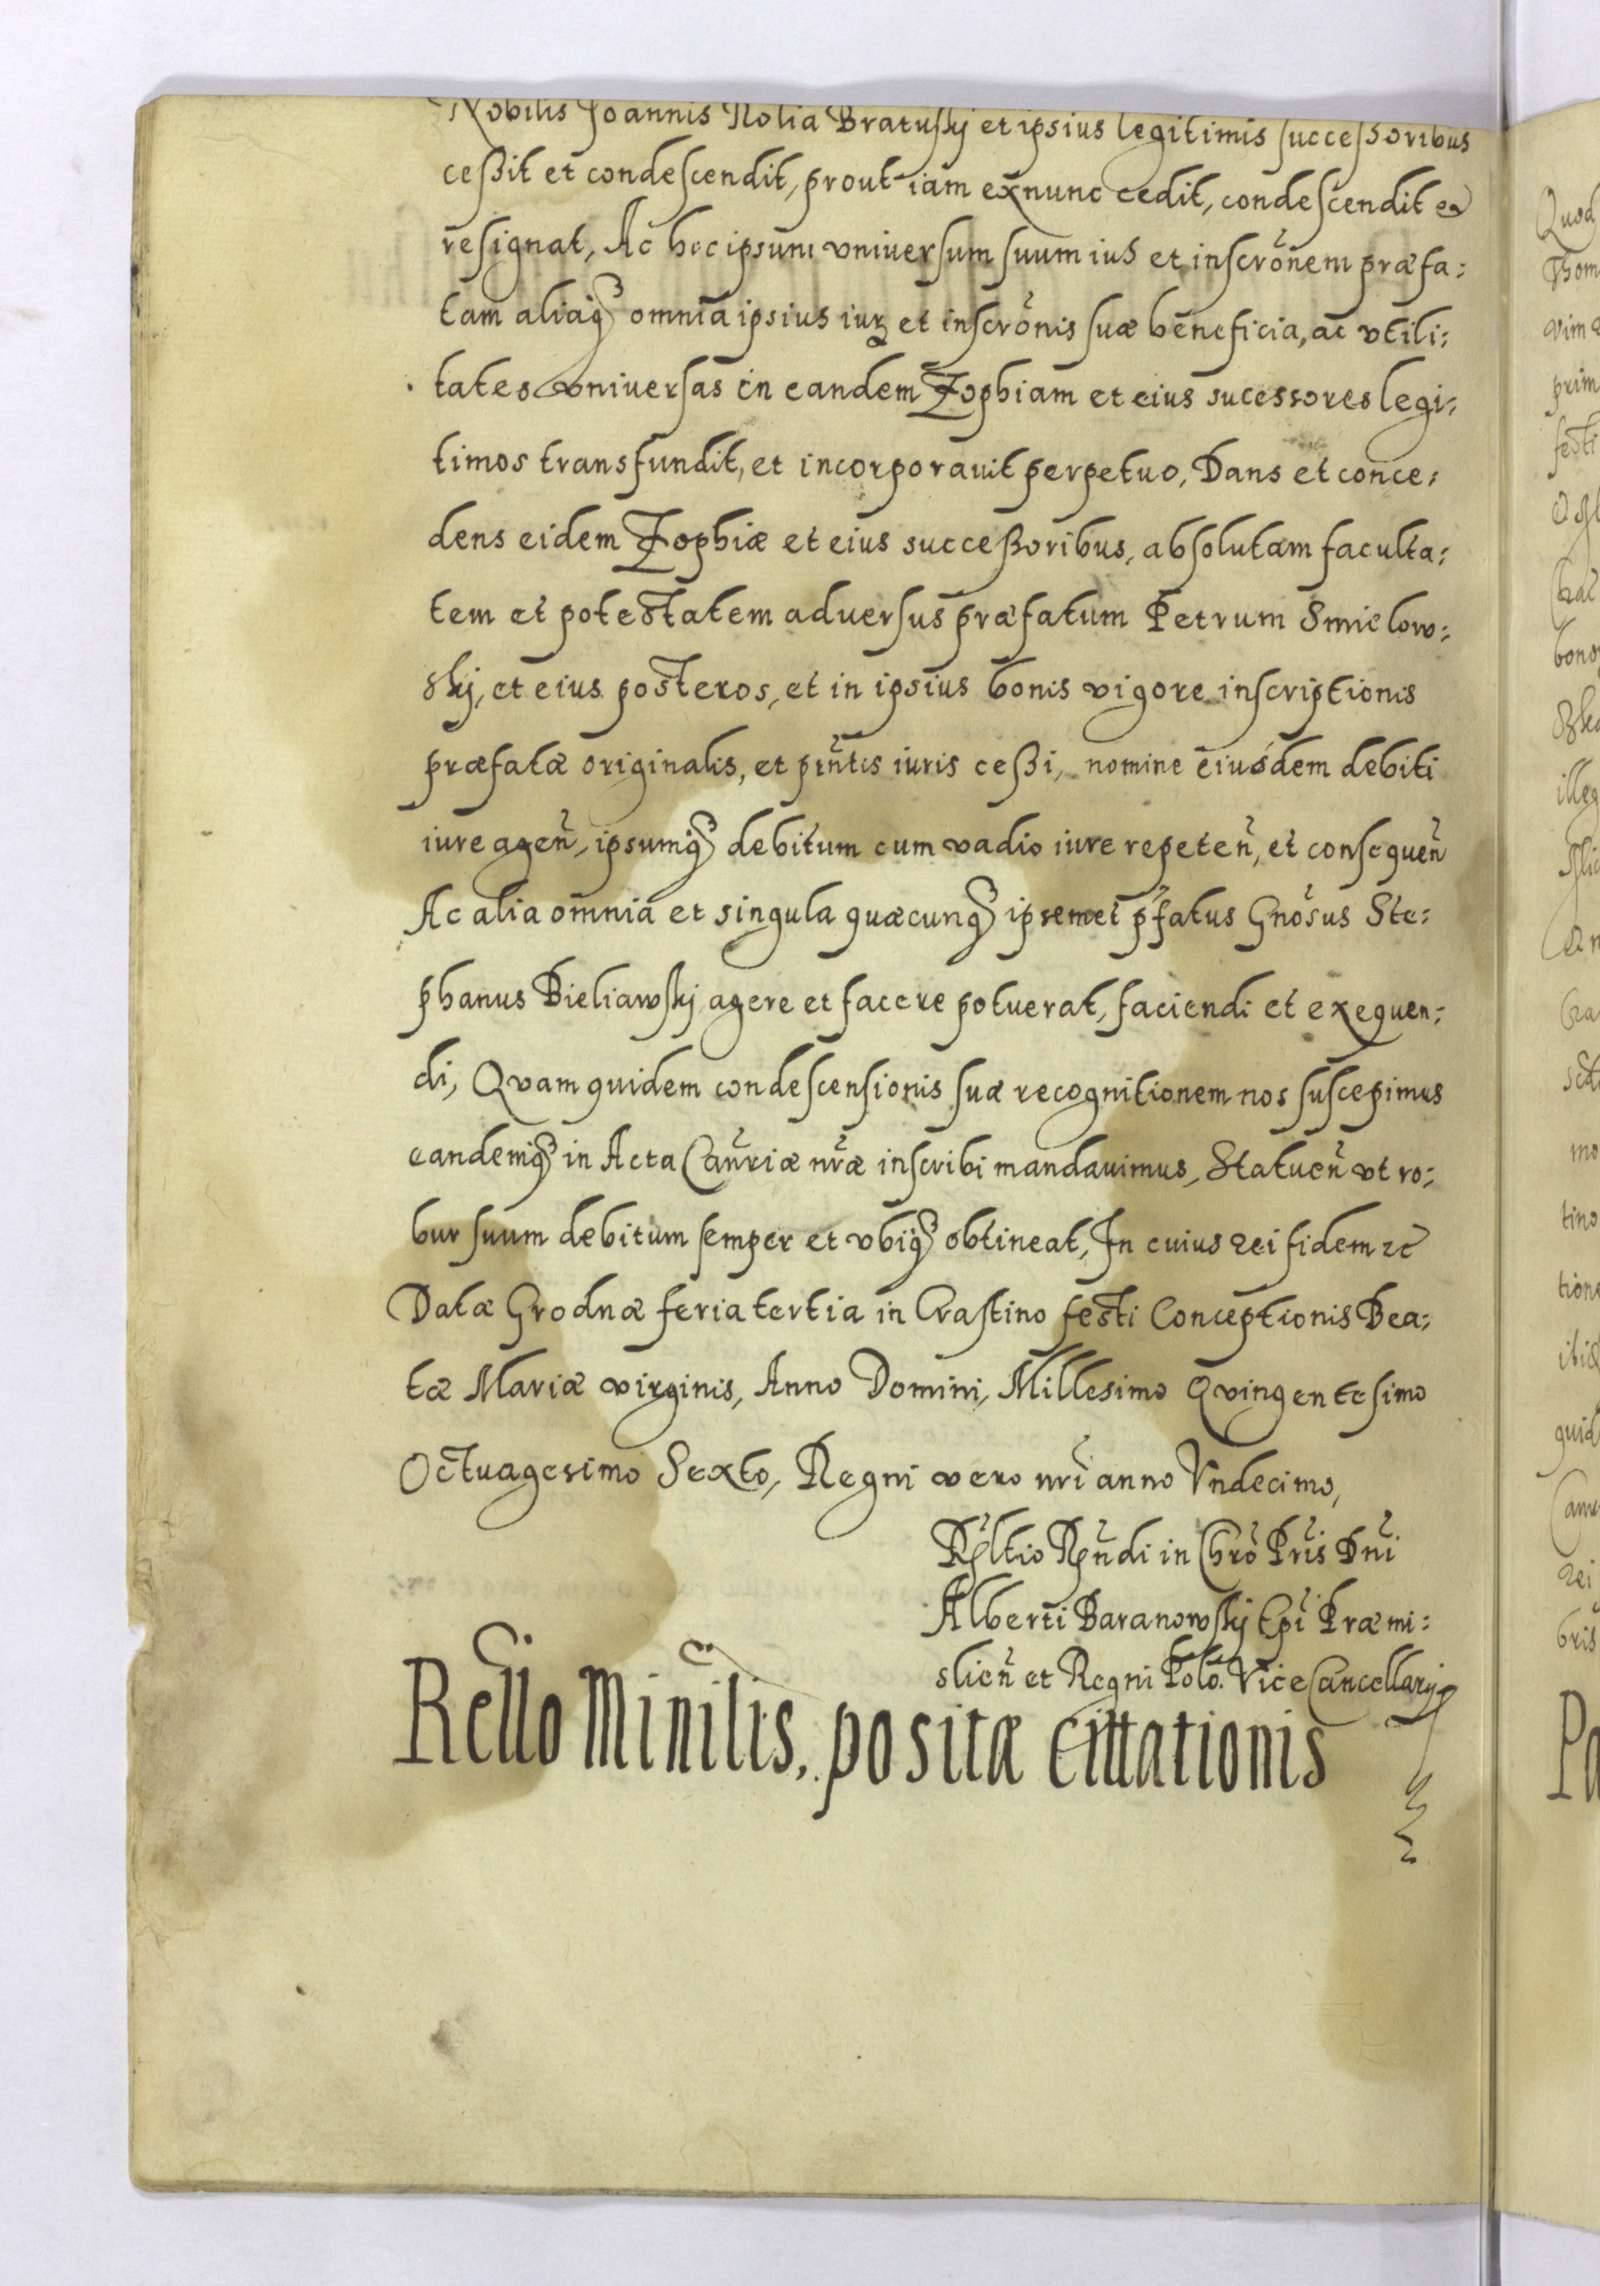 Nobilis Joannis Nolia Bratuskj et ipsius legitimis successoribus
ceßit et condescendit, prout iam exnunc cedit, condescendit et
resignat, Ac hoc ipsum vniuersum suum ius et inscrōnem præfa:
tam aliaq̃ omnia ipsius iur et inscrōnis suæ beneficia, ac vtili:
tates vniuersas in eandem Zophiam et eius sucessores legi:
timos transfundit, et incorporauit perpetuo, Dans et conce:
dens eidem Zophiæ et eius succeßoribus, absolutam faculta:
tem et potestatem aduersus præfatum Petrum Smielow:
skj, et eius posteros, et in ipsius bonis vigore inscriptionis
præfatæ originalis, et pñtis iuris ceßi, nomine eiusdem debiti
iure ageñ, ipsumq̃ debitum cum vadio iure repeteñ, et consequeñ
Ac alia omnia et singula quæcunq̃ ipsemet p̃fatus Gnōsus Ste:
phanus Bieliawskj agere et facere potuerat, faciendi et exequen:
di, Qvam quidem condescensionis suæ recognitionem nos suscepimus
eandemq̃ in Acta Cañriæ nr̃æ inscribi mandauimus, Statueñ vt ro:
bur suum debitum semper et vbiq̃ obtineat, In cuius rei fidem ꝛc
Datæ Grodnæ feria tertia in Crastino festi Conceptionis Bea:
tæ Mariæ virginis, Anno Domini, Millesimo Qvingentesimo
Octuagesimo Sexto, Regni vero nr̃i anno Vndecimo,
Rl̃tio Rñdi in Chrō Pr̃is Dñi
Alberti Baranowskj Ep̃i Præmi:
slieñ et Regni Polō. Vice Cancellarij
Rello Minilis, positæ cittationis